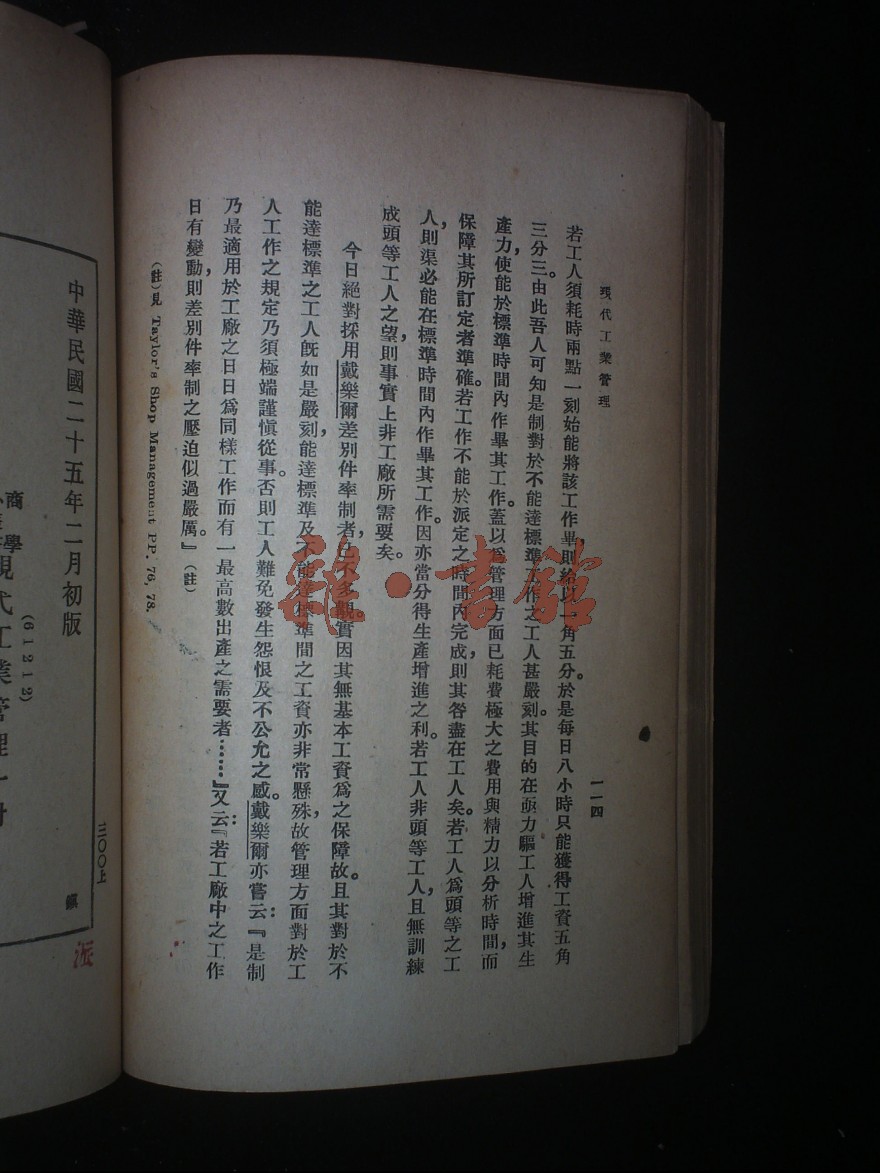 現代工業管理
一一四
若工人須耗時兩點一刻始能將該工作畢，則給以一角五分。於是每日八小時只能獲得工資五角
三分三。由此吾人可知是制對於不能達標準工作之工人甚嚴刻。其目的在亟力驅工人增進其生
產力，使能於標準時間內作畢其工作。蓋以爲管理方面已耗費極大之費用與精力以分析時間，而
保障其所訂定者準確。若工作不能於派定之時間內完成，則其咎盡在工人矣。若工人爲頭等之工
人，則渠必能在標準時間內作畢其工作。因亦當分得生產增進之利。若工人非頭等工人，且無訓練
成頭等工人之望，則事實上非工廠所需要矣。
今日絕對採用戴樂爾差別件率制者，已不多觀。實因其無基本工資爲之保障故。且其對於不
能達標準之工人旣如是嚴刻，能達標準及不能達標準間之工資亦非常懸殊，故管理方面對於工
人工作之規定乃須極端謹愼從事。否則工人難免發生怨恨及不公允之感。戴樂爾亦嘗云：『是制
乃最適用於工廠之日日爲同樣工作而有一最高數出產之需要者……』又云：『若工廠中之工作
日有變動，則差別件率制之壓迫似過嚴厲。』（註）
（註）見 Taylor's Shop Management PP. 76, 78.
雅·書館
中華民國二十五年二月初版
(61212)
商學
現代工業管理一册
三〇〇上